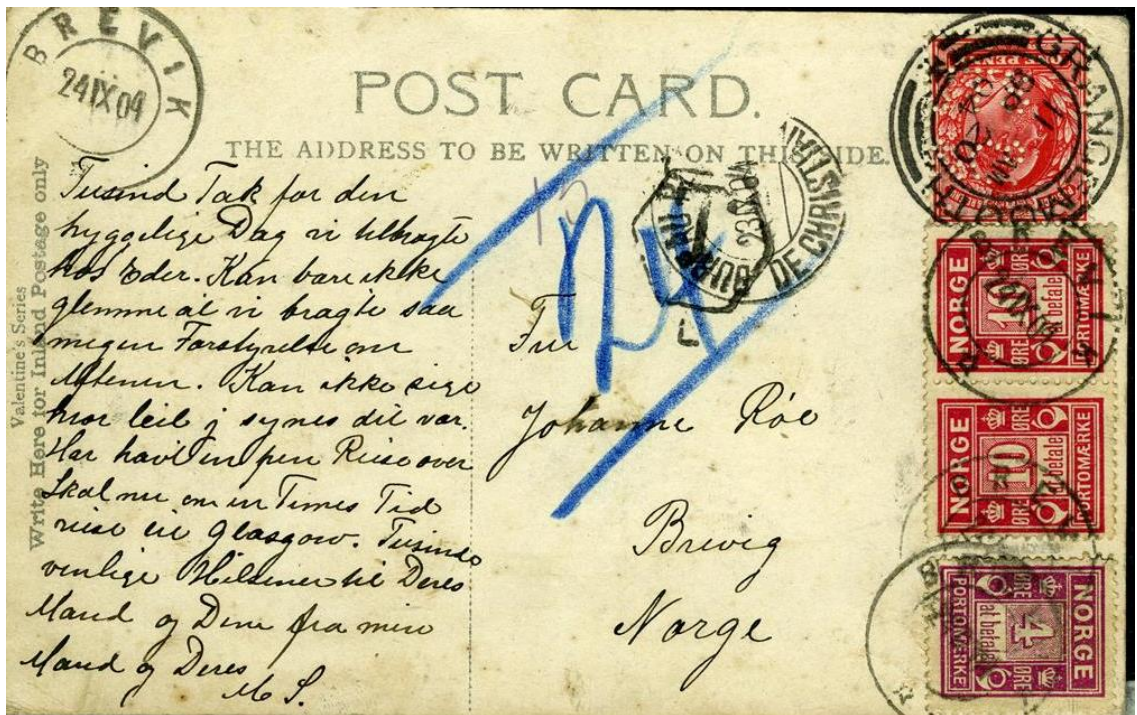 BREVIK
24 IX 04
POST CARD.
THE ADDRESS TO BE WRITTEN ON THIS SIDE.
Valentine's Series
Write Here for Inland Postage only
Tusind Tak for den
hyggelige Dag vi tilbragte
hos Eder. Kan bare ikke
glemme at vi bragte saa
megen Forstyrelse om
Aftenen. Kan ikke sige
hvor leit j synes dit var.
Har havt en pen Reise over
Skal nu om en Times Tid
reise til Glasgow. Tusinde
venlige Hilsener til Deres
Mand og Dem fra min
Mand og Deres
M S.
24
T
L
Fru
Johanne Röe
Brevig
Norge
GRANGEMOUTH
BUREAU
DE CHRISTIANIA
BREVIK
24 IX 04
NORGE
10
ØRE
at betale
PORTOMÆRKE
NORGE
10
ØRE
at betale
PORTOMÆRKE
NORGE
4
ØRE
at betale
PORTOMÆRKE